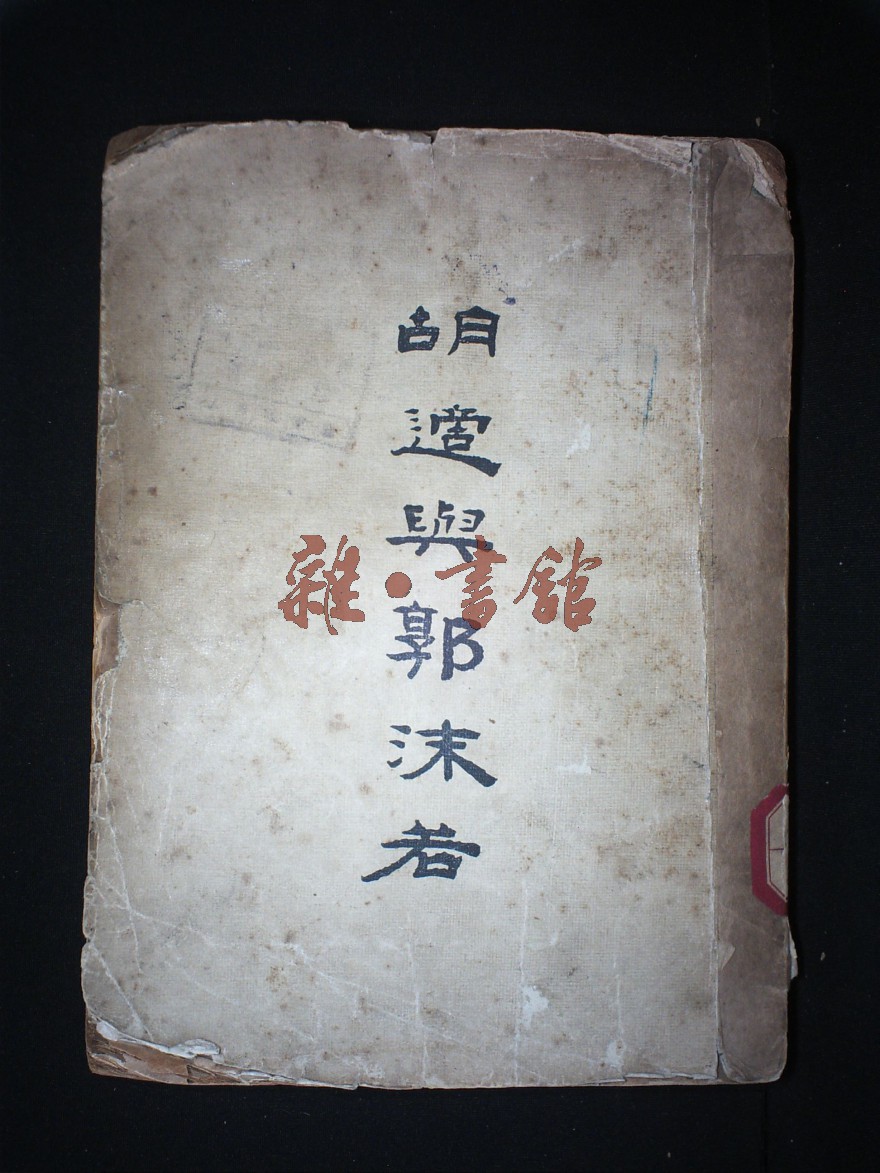 胡適與郭沫若
雜·書館